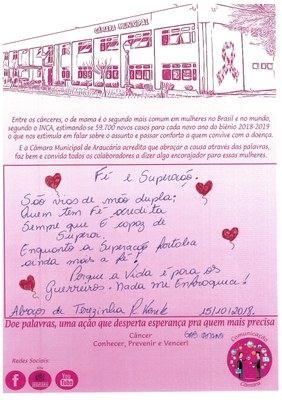 CÂMARA MUNICIPAL
Entre os cânceres, o de mama é o segundo mais comum em mulheres no Brasil e no mundo,
segundo o INCA, estimando-se 59.700 novos casos para cada novo ano do biênio 2018-2019
o que nos estimula em falar sobre o assunto e passar conforto a quem convive com a doença.
E a Câmara Municipal de Araucária acredita que abraçar a causa através das palavras,
faz bem e convida todos os colaboradores a dizer algo encorajador para essas mulheres.
Fé e Superação.
São vias de mão dupla:
Quem tem Fé acredita
Sempre que É capaz de
Superar.
Enquanto a Superação fortalece
ainda mais a fé!
Porque a Vida é para os
Guerreiros. Nada me Enfraquece!
Abraço de Terezinha R. 15/10/2018.
Doe palavras, uma ação que desperta esperança pra quem mais precisa
Câncer
Conhecer, Prevenir e Vencer!
Redes Sociais
f
You
Tube
Comunicação
Câmara